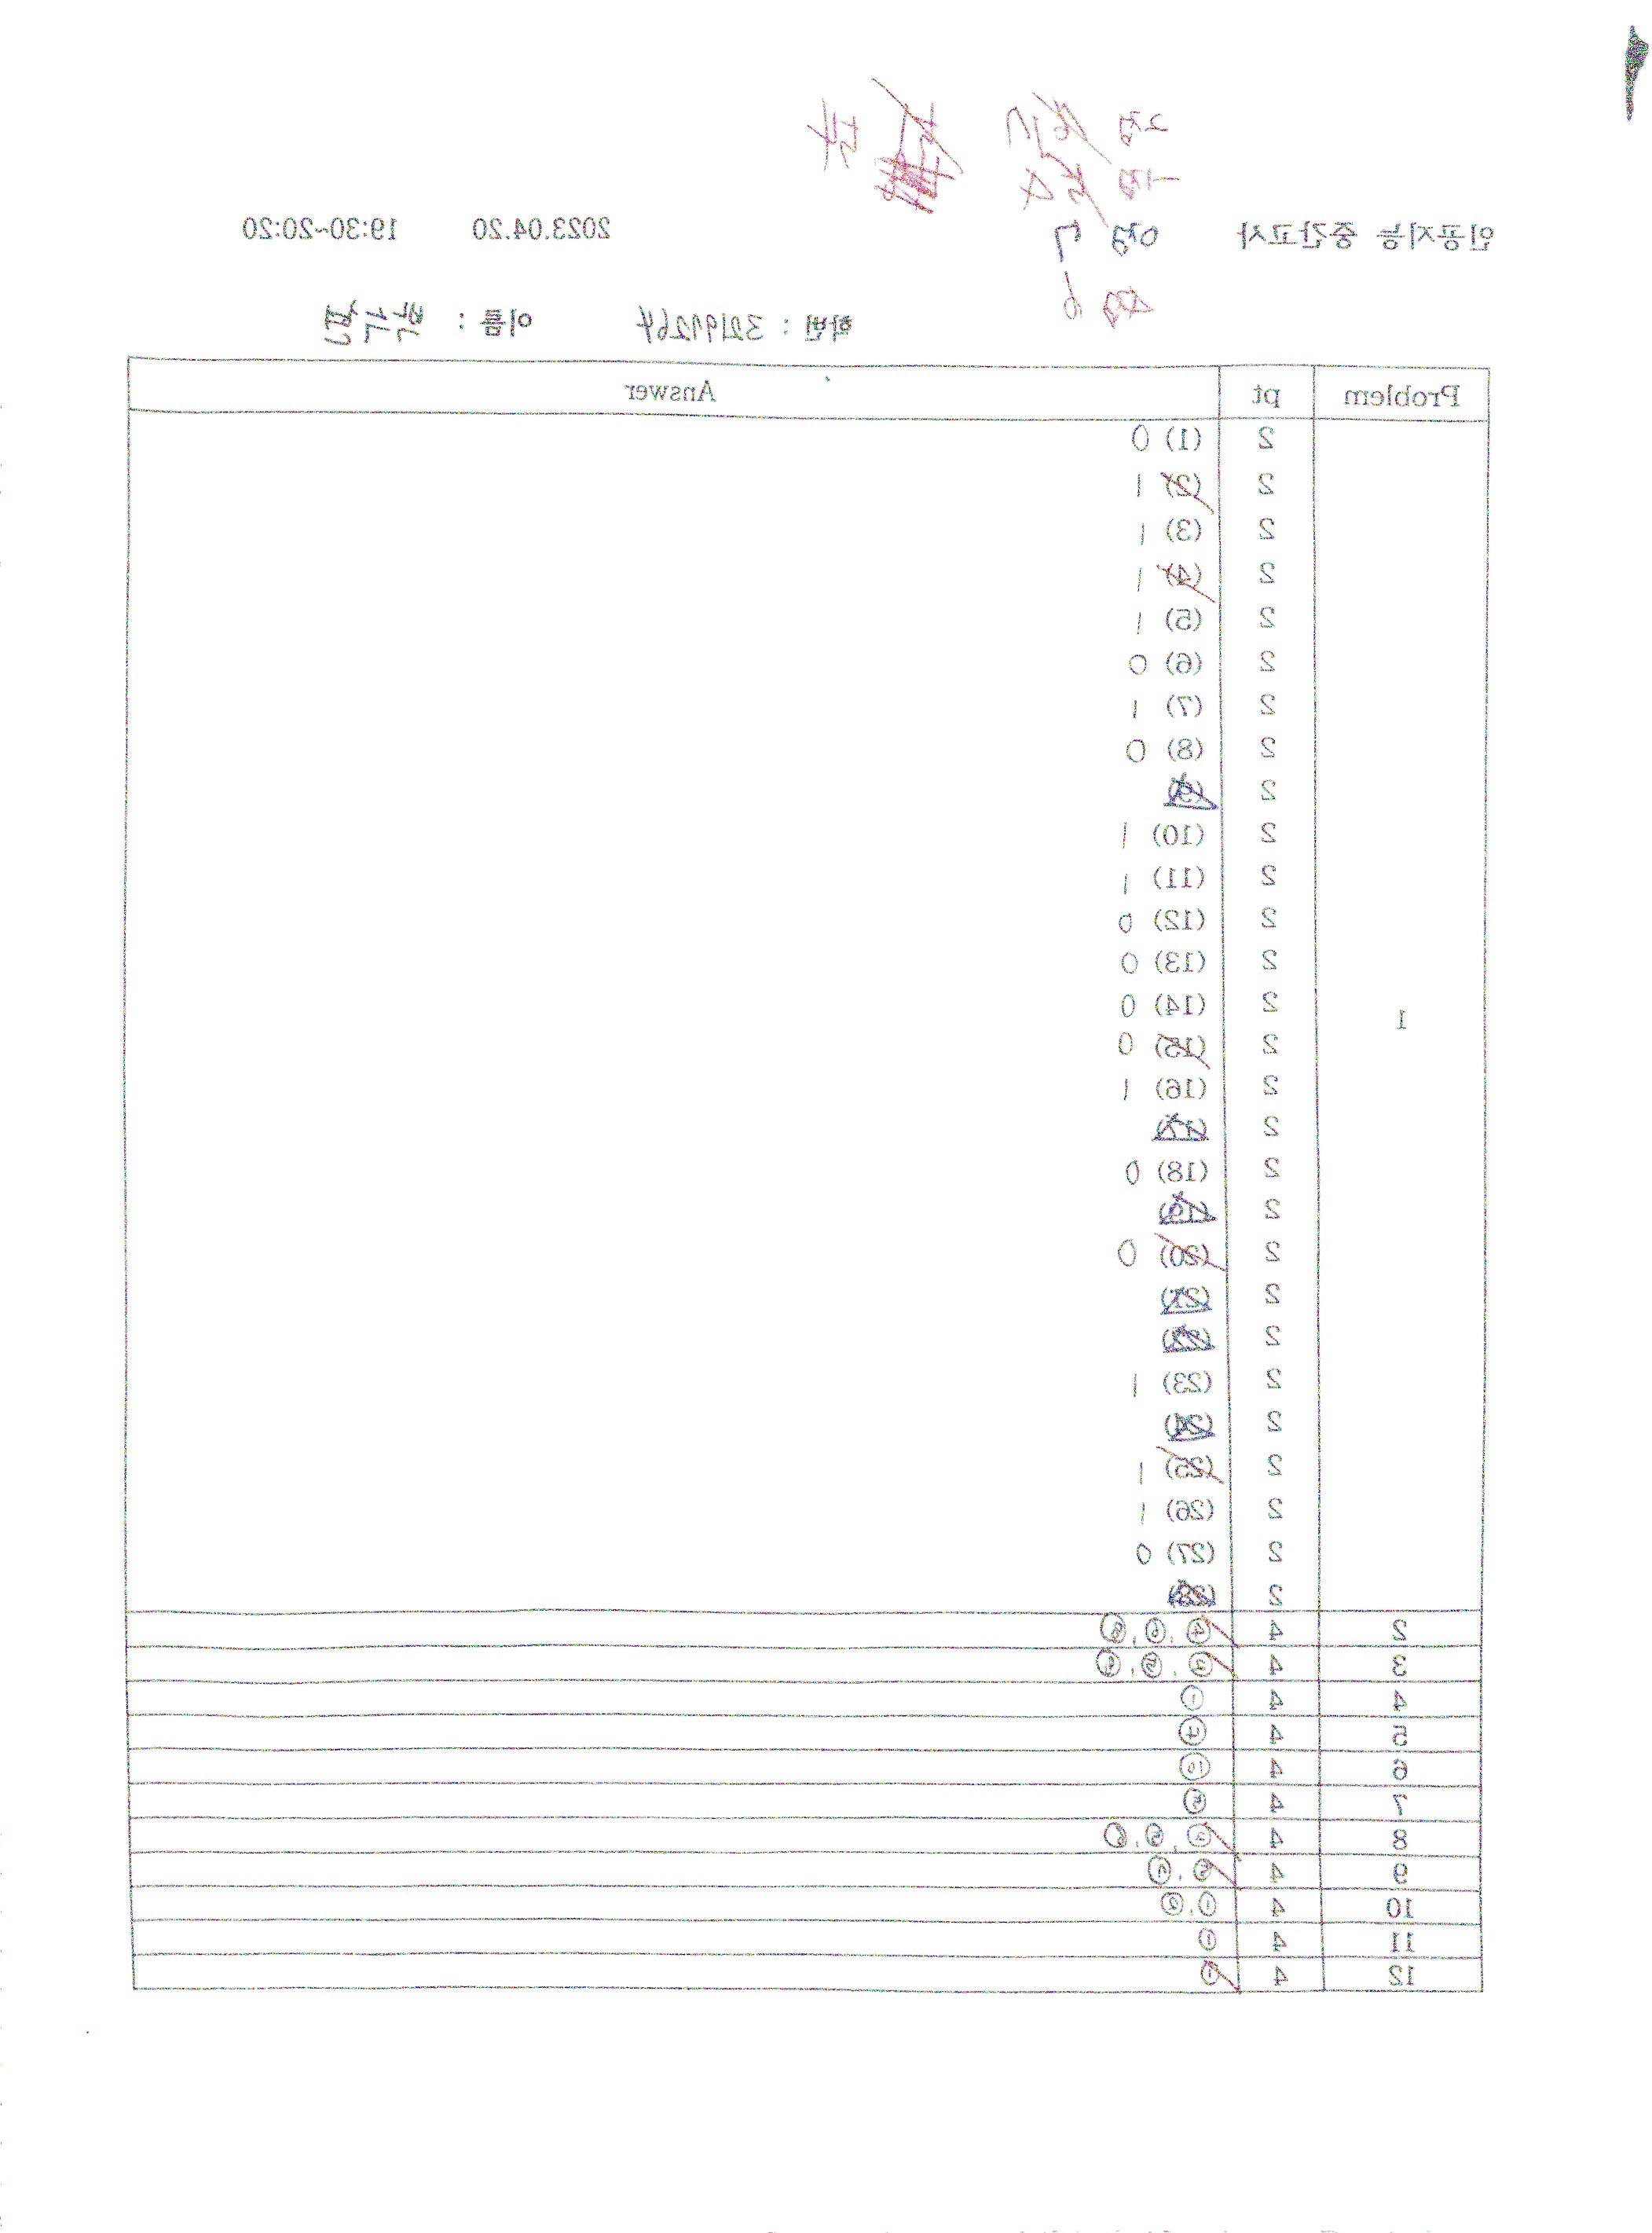 인공지능 중간고사 2023.04.20 19:30~20:20
학번 : 32197264 이름 :
Problem pt Answer
1
2 (1) 0
2 (2) 1
2 (3) 1
2 (4) 1
2 (5) 1
2 (6) 0
2 (7) 1
2 (8) 0
2 (9)
2 (10) 1
2 (11) 1
2 (12) 0
2 (13) 0
2 (14) 0
2 (15) 0
2 (16) 1
2 (17)
2 (18) 0
2 (19)
2 (20) 0
2 (21)
2 (22)
2 (23) 1
2 (24)
2 (25) 1
2 (26) 1
2 (27) 0
2 (28)
2 4 ④, ⑥, ⑧
3 4 ②, ⑤, ⑨
4 4 ①
5 4 ⑦
6 4 ⑩
7 4 ⑤
8 4
9 4
10 4 ①, ②
11 4 ①
12 4 ①